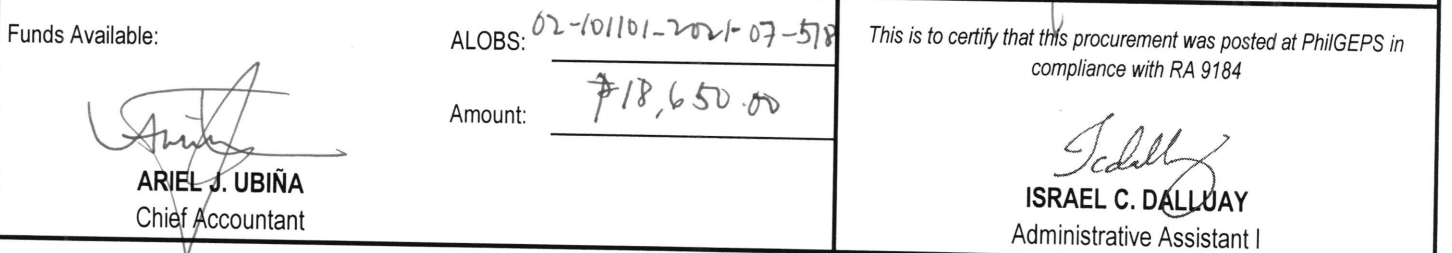 Funds Available:
ARIEL J. UBIÑA
Chief Accountant
ALOBS: 02-101101-2021-07-518
Amount: ₱18,650.00
This is to certify that this procurement was posted at PhilGEPS in
compliance with RA 9184
ISRAEL C. DALLUAY
Administrative Assistant I